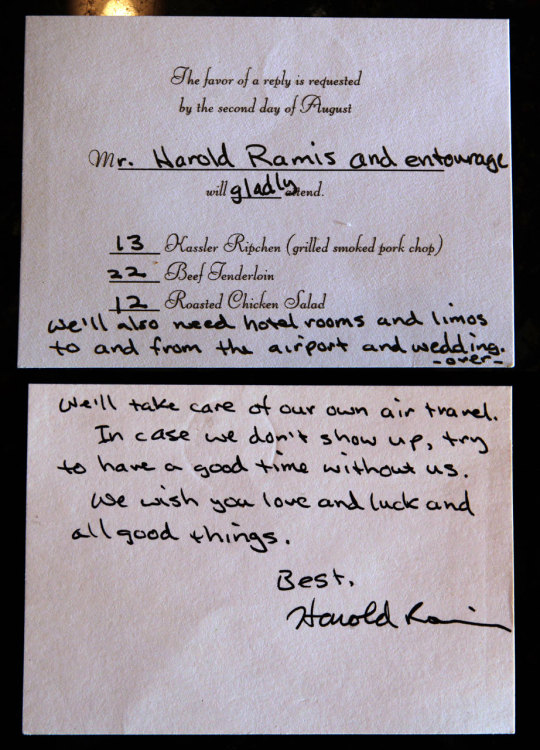 The favor of a reply is requested
by the second day of August
Mr. Harold Ramis and entourage
will gladly attend.
13 Kassler Ripchen (grilled smoked pork chop)
22 Beef Tenderloin
12 Roasted Chicken Salad
We'll also need hotel rooms and limos
to and from the airport and wedding.
-over-
We'll take care of our own air travel.
In case we don't show up, try
to have a good time without us.
We wish you love and luck and
all good things.
Best,
Harold Ramis